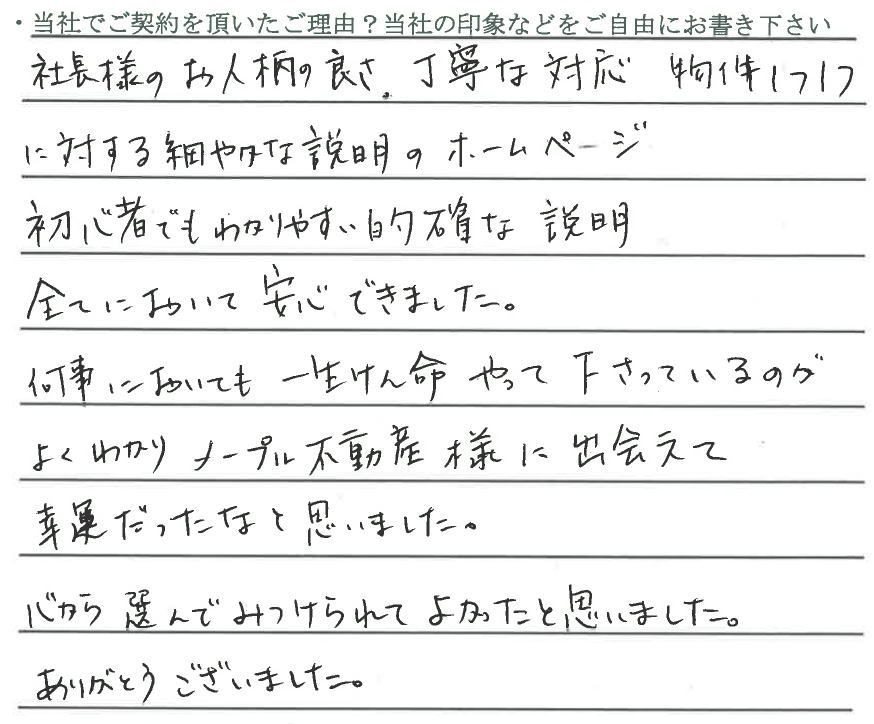 ・当社でご契約を頂いたご理由？当社の印象などをご自由にお書き下さい
社長様のお人柄の良さ、丁寧な対応 物件1つ1つ
に対する細やかな説明のホームページ
初心者でもわかりやすい的確な説明
全てにおいて安心できました。
何事においても一生けん命やって下さっているのが
よくわかりメープル不動産様に出会えて
幸運だったなと思いました。
心から選んでみつけられてよかったと思いました。
ありがとうございました。